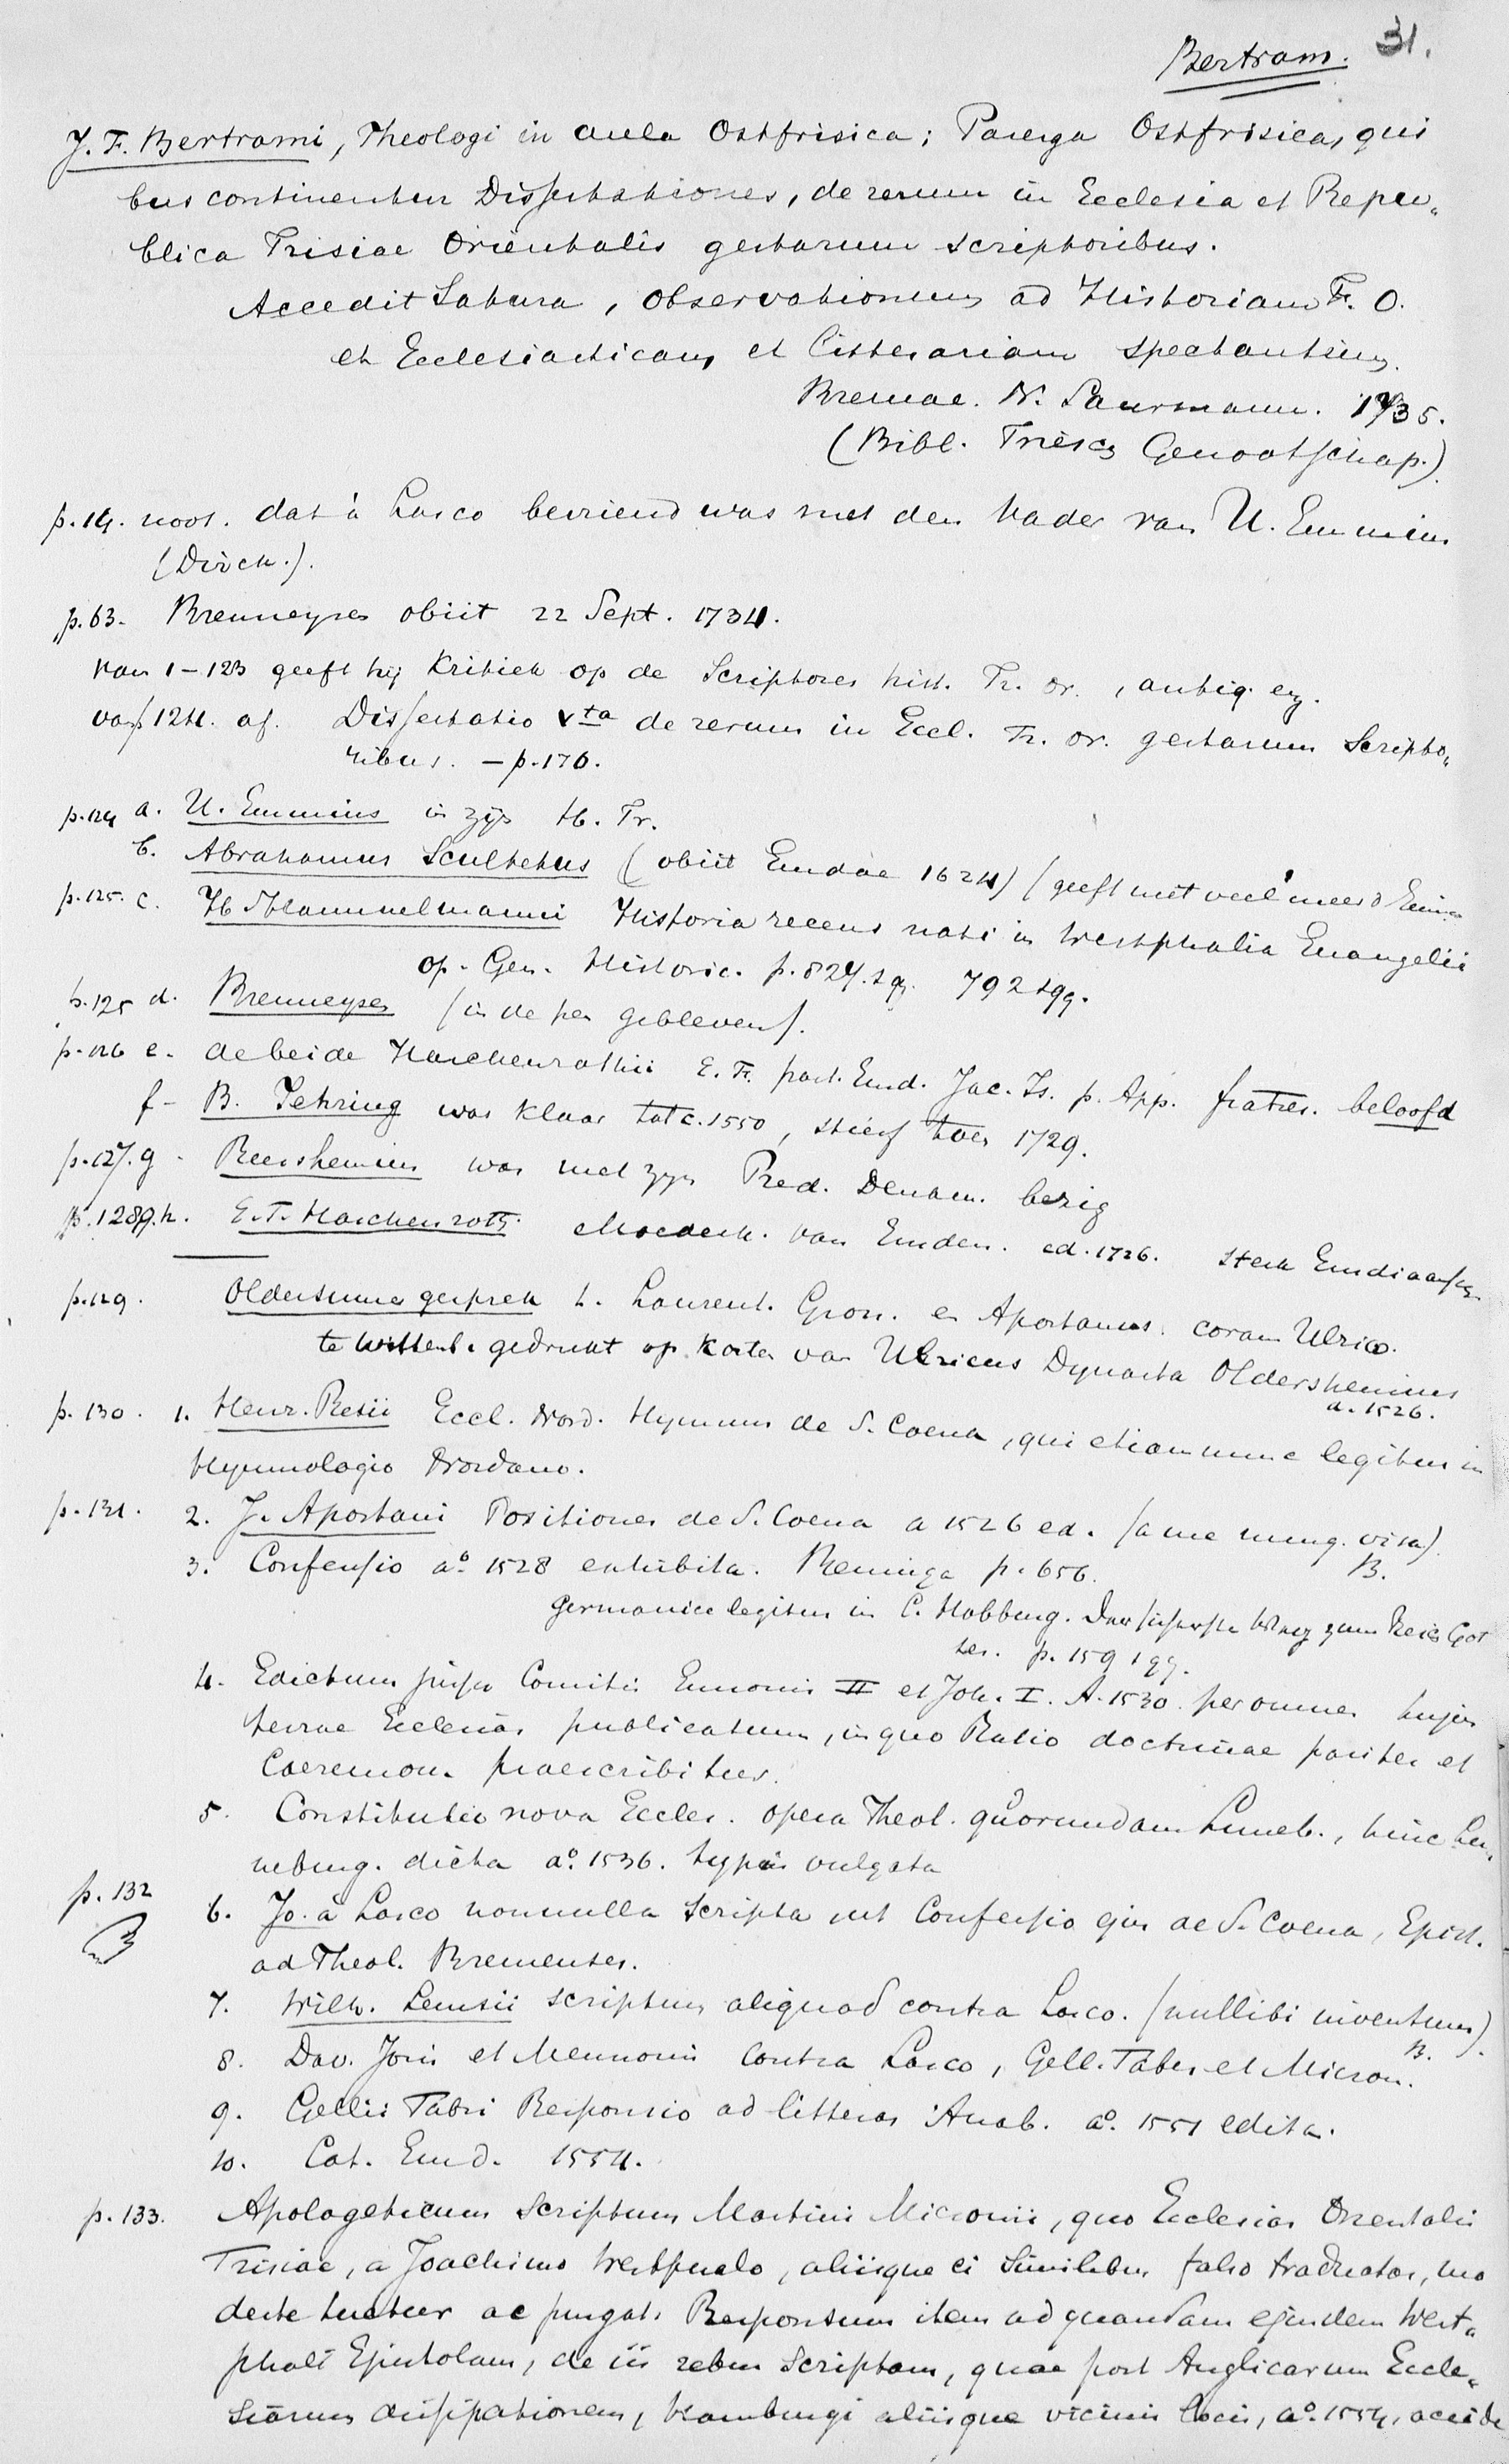 31.
Bertram.
J. F. Bertrami, Theologi in aula Ostfrisica; Parerga Ostfrisica, qui
bus continentur Dissertationes, de rerum in Ecclesia et Repu„
blica Frisiae Orientalis gestarum scriptoribus.
Accedit Satura, Observationum ad Historiam Fr. O.
et Ecclesiasticam et Litterariam spectantium.
Bremae. N. Saurmann. 1735.
(Bibl. Friesch Genootschap.)
p. 14. noot. dat à Lasco bevriend was met den Vader van U. Emmius
(Dirck.).
p. 63. Brenneysen obiit 22 Sept. 1734.
van 1-123 geeft hij Kritiek op de Scriptores hist. Fr. or., antiq. enz.
van p 124. af. Dissertatio Vta de rerum in Eccl. Fr. or. gestarum Scripto„
ribus. - p. 176.
p. 124 a. U. Emmius in zijn H. Fr.
b. Abrahamus Scultetus (obiit Emdae 1624) (geeft niet veel meer d Emmius
p. 125. c. H. Hammelmanni Historia recens nati in Westphalia Evangelii
op. Gen. Historic. p. 827. sq. 792 sqq.
p. 125 d. Brenneysen (in de pen gebleven).
p. 126 e. de beide Harckenrothii E. Fr. past. Emd. Jac. Is. p. App. fratres. beloofd
f- B. Jehring was klaar tot c. 1550, stierf toen 1729.
p. 127. g. Reershemius was met zijn Pred. Denkm. bezig
p. 128 g. h. E. F. Harckenroth. Moederk. van Emden. ed. 1726. sterk Emdiaansch.
p. 129. Oldersumer gesprek t. Laurent. Gron. en Aportanus. coram Ulrico.
te Wittenb. gedrukt op Kosten van Ulricus Dynasta Oldershemius
a. 1526.
p. 130. 1. Henr. Resii Eccl. Nord. Hymnus de S. Coena, qui etiamnunc legitur in
Hymnologio Nordano.
p. 131. 2. J. Aportani Positiones de S. Coena a 1526 ed. (a me nunq. visa).
B.
3. Confessio ao. 1528 exhibita. Beninga p. 656.
Germanice legitur in C. Hobburg. Der sicherste Weg zum Reich Got
tes. p. 159 sqq.
4. Edictum jussu Comitis Ennonis II et Joh. I. A. 1530. per omnes hujus
terrae Ecclesias publicatum, in quo Ratio doctrinae pariter et
Caeremon. praescribitur.
5. Constitutio nova Eccles. opera Theol. quorumdam Luneb., hinc Lu„
neburg. dicta ao. 1536. typis vulgata
p. 132
6. Jo. a Lasco nonnulla Scripta ut Confessio ejus de S. Coena, Epist.
ad Theol. Bremenses.
7. Wilh. Lemsii scriptum aliquod contra Lasco. (nullibi inventum).
B.
8. Dav. Joris et Mennonis contra Lasco, Gell. Faber et Micron.
9. Gellii Fabri Responsio ad litteras Anab. ao. 1551 edita.
10. Cat. Emd. 1554.
p. 133. Apologeticum Scriptum Martini Micronii, quo Ecclesias Orientalis
Frisiae, a Joachimo Westphalo, aliisque ei Similibus falso traductas, mo
deste tuetur ac purgat. Responsum item ad quandam ejusdem West„
phali Epistolam, de iis rebus Scriptam, quae post Anglicarum Eccle„
siarum dissipationem, Hamburgi aliisque vicinis locis, ao. 1554, accide